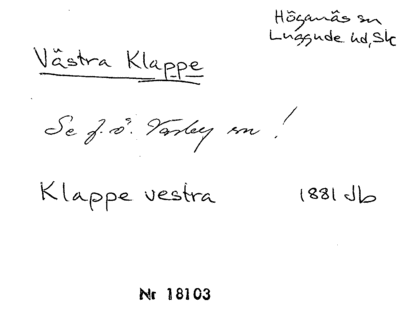 Höganäs sn
Luggude hd, Sk
Västra Klappe
Se f. ö. Väsby sn!
Klappe vestra 1881 Jb
Nr 18103